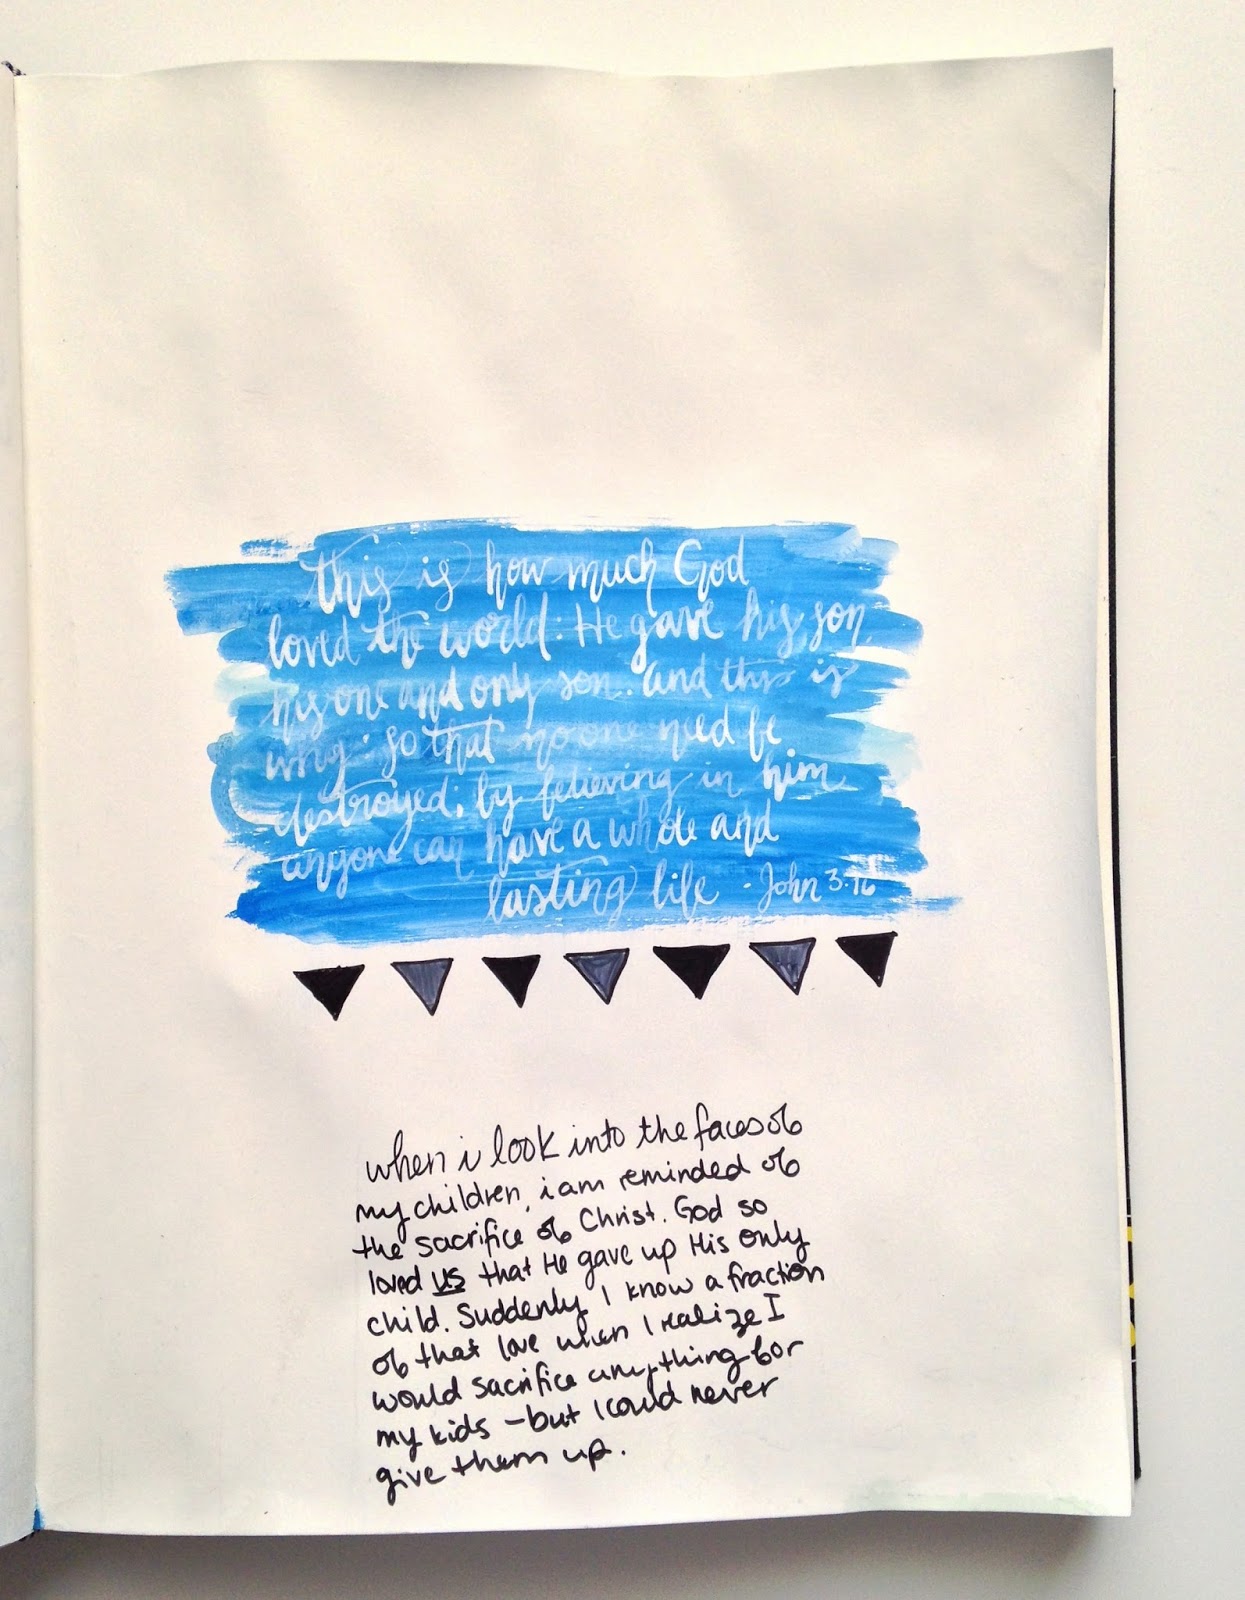 this is how much God
loved the world: He gave his son,
his one and only son. and this is
why: so that no one need be
destroyed; by believing in him
anyone can have a whole and
lasting life. - John 3:16
when i look into the faces of
my children, i am reminded of
the sacrifice of Christ. God so
loved us that He gave up His only
child. Suddenly I know a fraction
of that love when I realize I
would sacrifice anything for
my kids - but I could never
give them up.